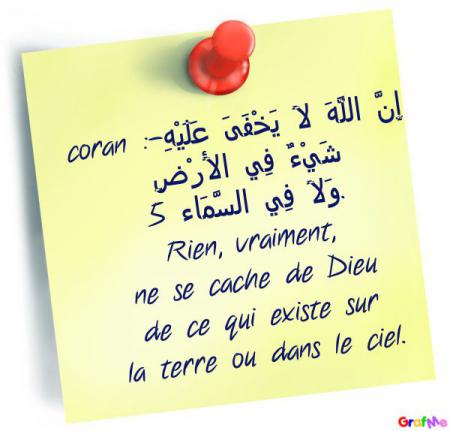 coran :-إِنَّ اللَّهَ لاَ يَخْفَىَ عَلَيْهِ
شَيْءٌ فِي الأَرْضِ
وَلاَ فِي السَّمَاء 5.
Rien, vraiment,
ne se cache de Dieu
de ce qui existe sur
la terre ou dans le ciel.
GrafMe